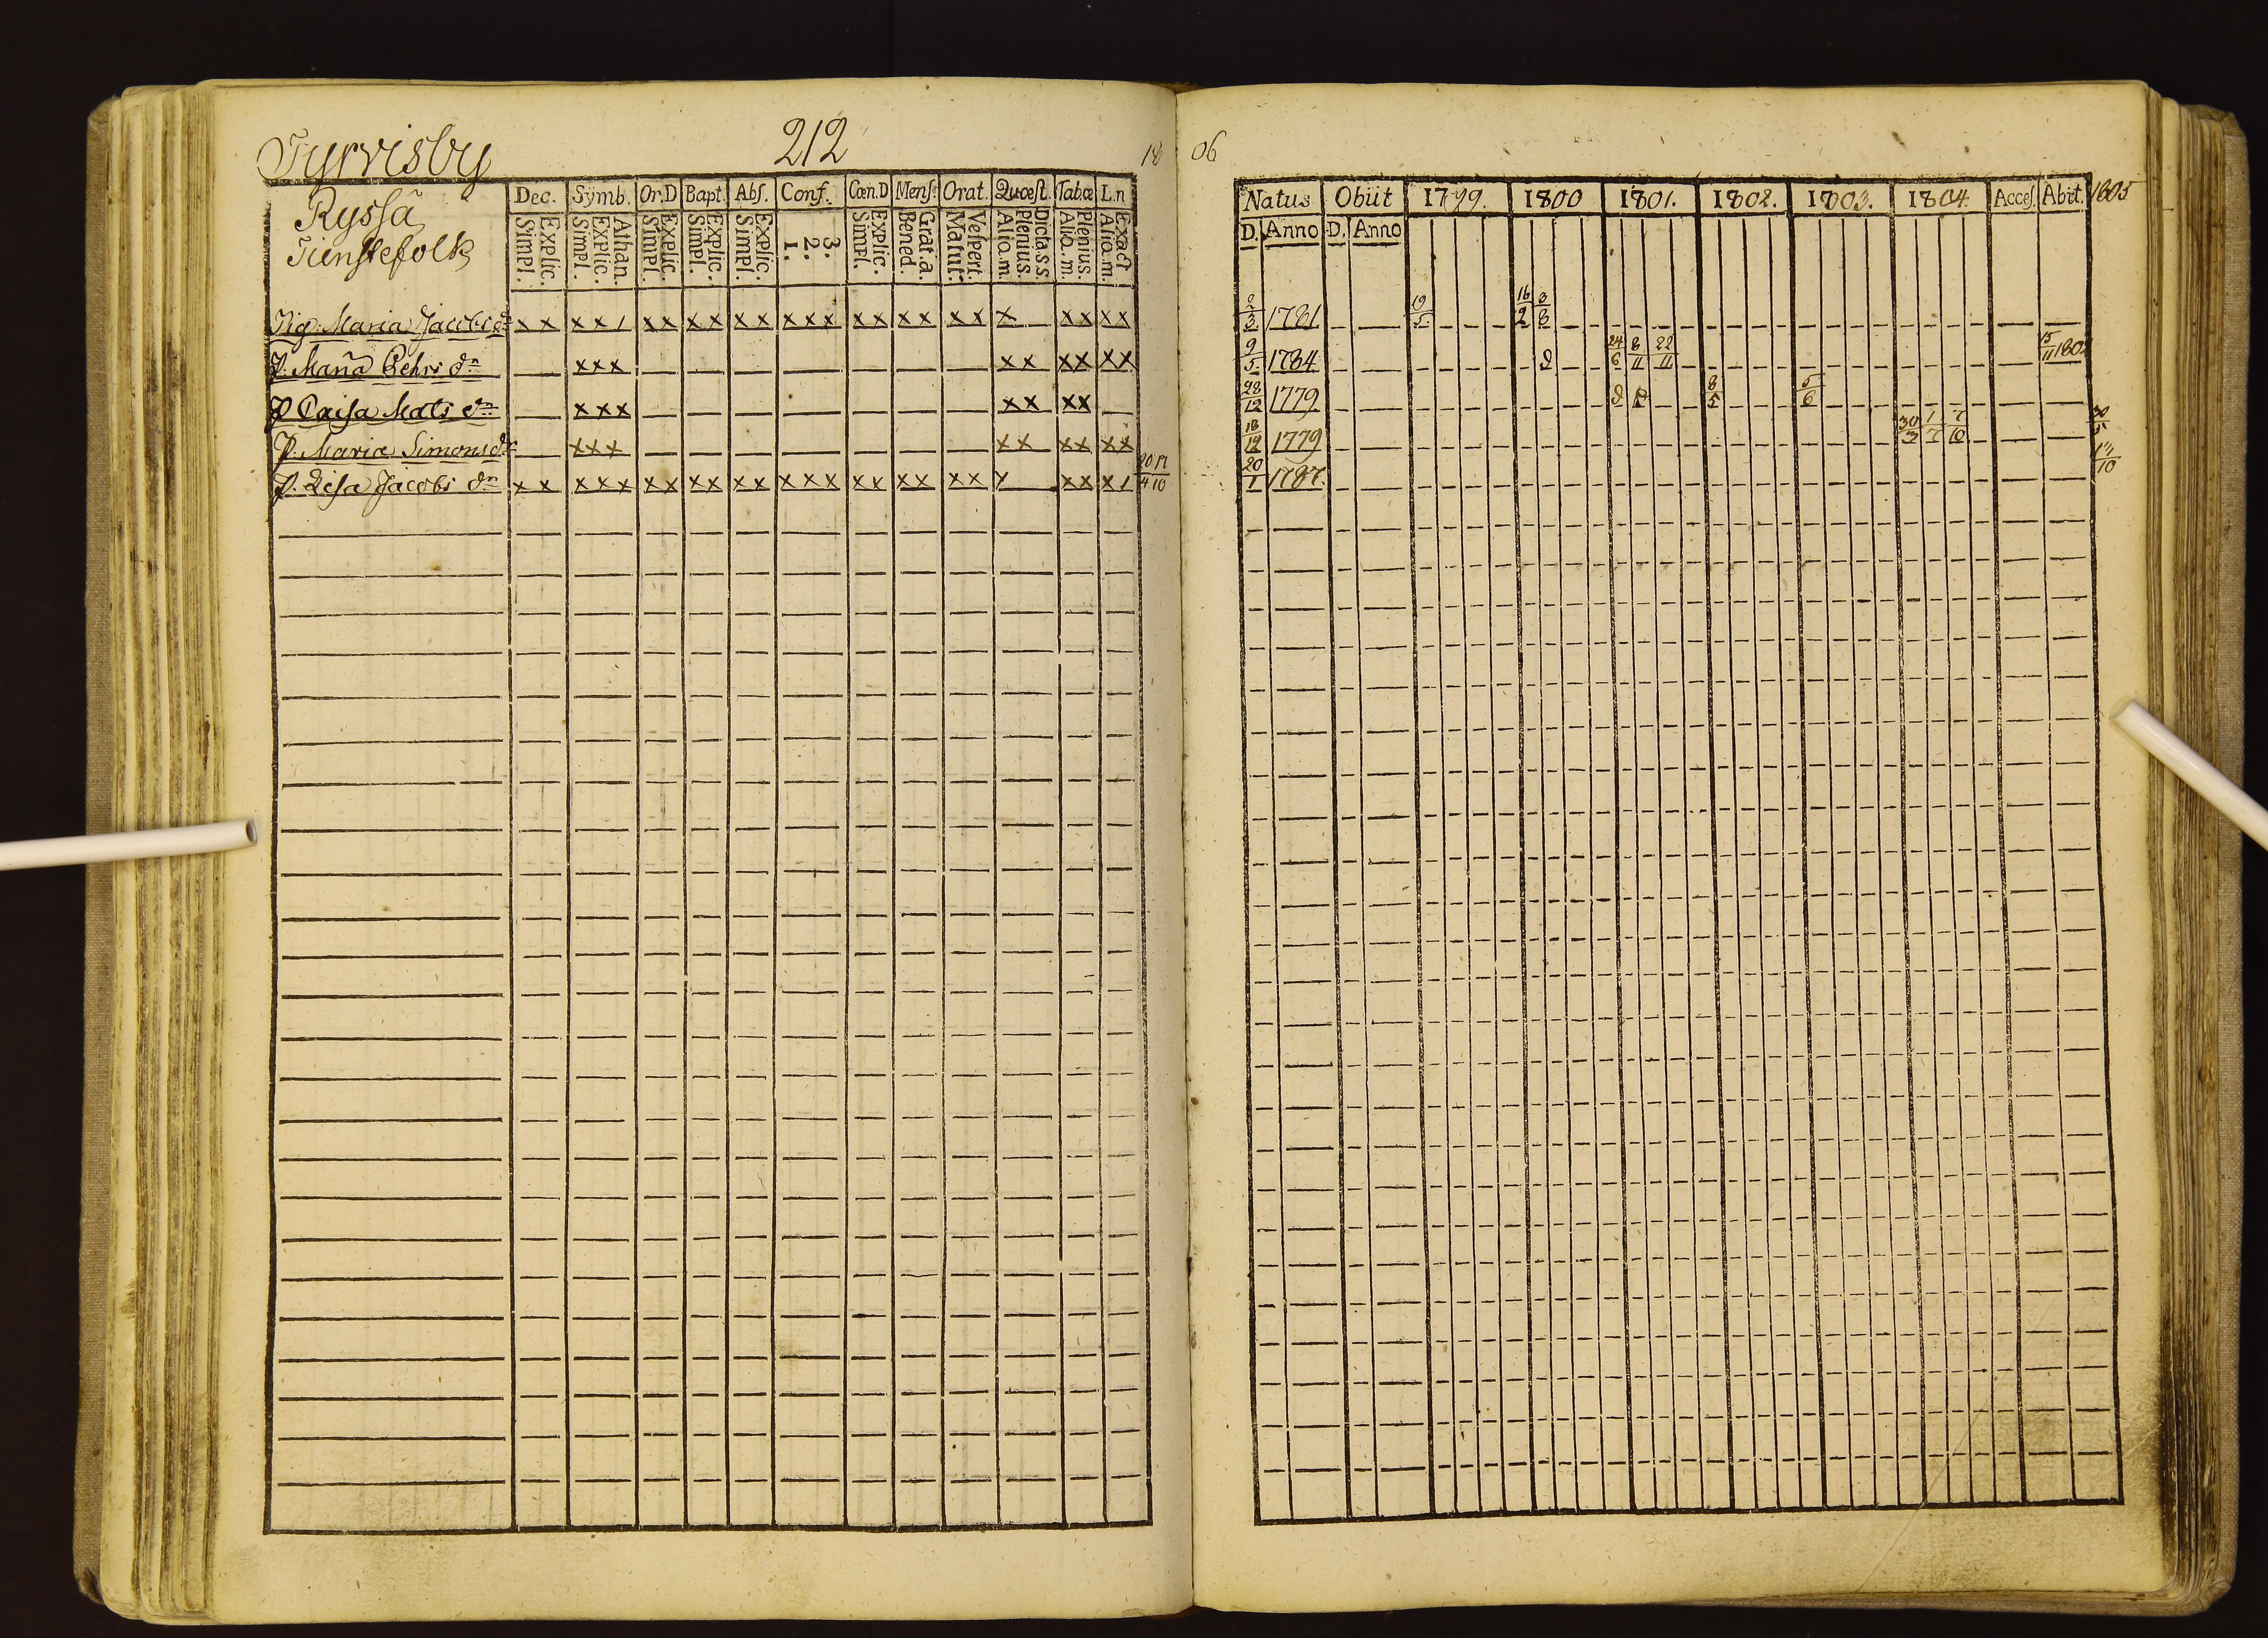 Tyrvisby 212 18 06
Ryssä
Tienstefolk
Dec. Symb. Or.D Bapt. Abſ. Conf. Cœn.D Menſ. Orat. Quœſt. Tabœ L.n
Explic. Simpl. Athan. Explic. Simpl. Explic. Simpl. Explic. Simpl. Explic. Simpl. 3. 2. 1. Explic. Simpl. Grat.a. Bened. Veſpert. Matut. Dicta s s. Plenius. Alio.m. Plenius. Alio.m. Exact Alio.m.
Natus Obiit 1799. 1800 1801. 1802. 1803. 1804. Acceſ. Abit. 1805
D. Anno D. Anno
Pig. Maria Jacobs dr x x x x / x x x x x x x x x x x x x x x x x x x x x 2/3 1781 19/5 16/2 8/8
P. Maria Pehrs dr x x x x x x x x x 9/5 1784 24/6 8/11 22/11 15/11 1802
P Caisa Mats dr x x x x x x x 28/12 1779 8/5 5/6
P. Maria Simons dr x x x x x x x x x 18/12 1779 30/3 1/7 7/10 30/5
P. Lisa Jacobs dr x x x x x x x x x x x x x x x x x x x x x x x x / 20/1 1787.